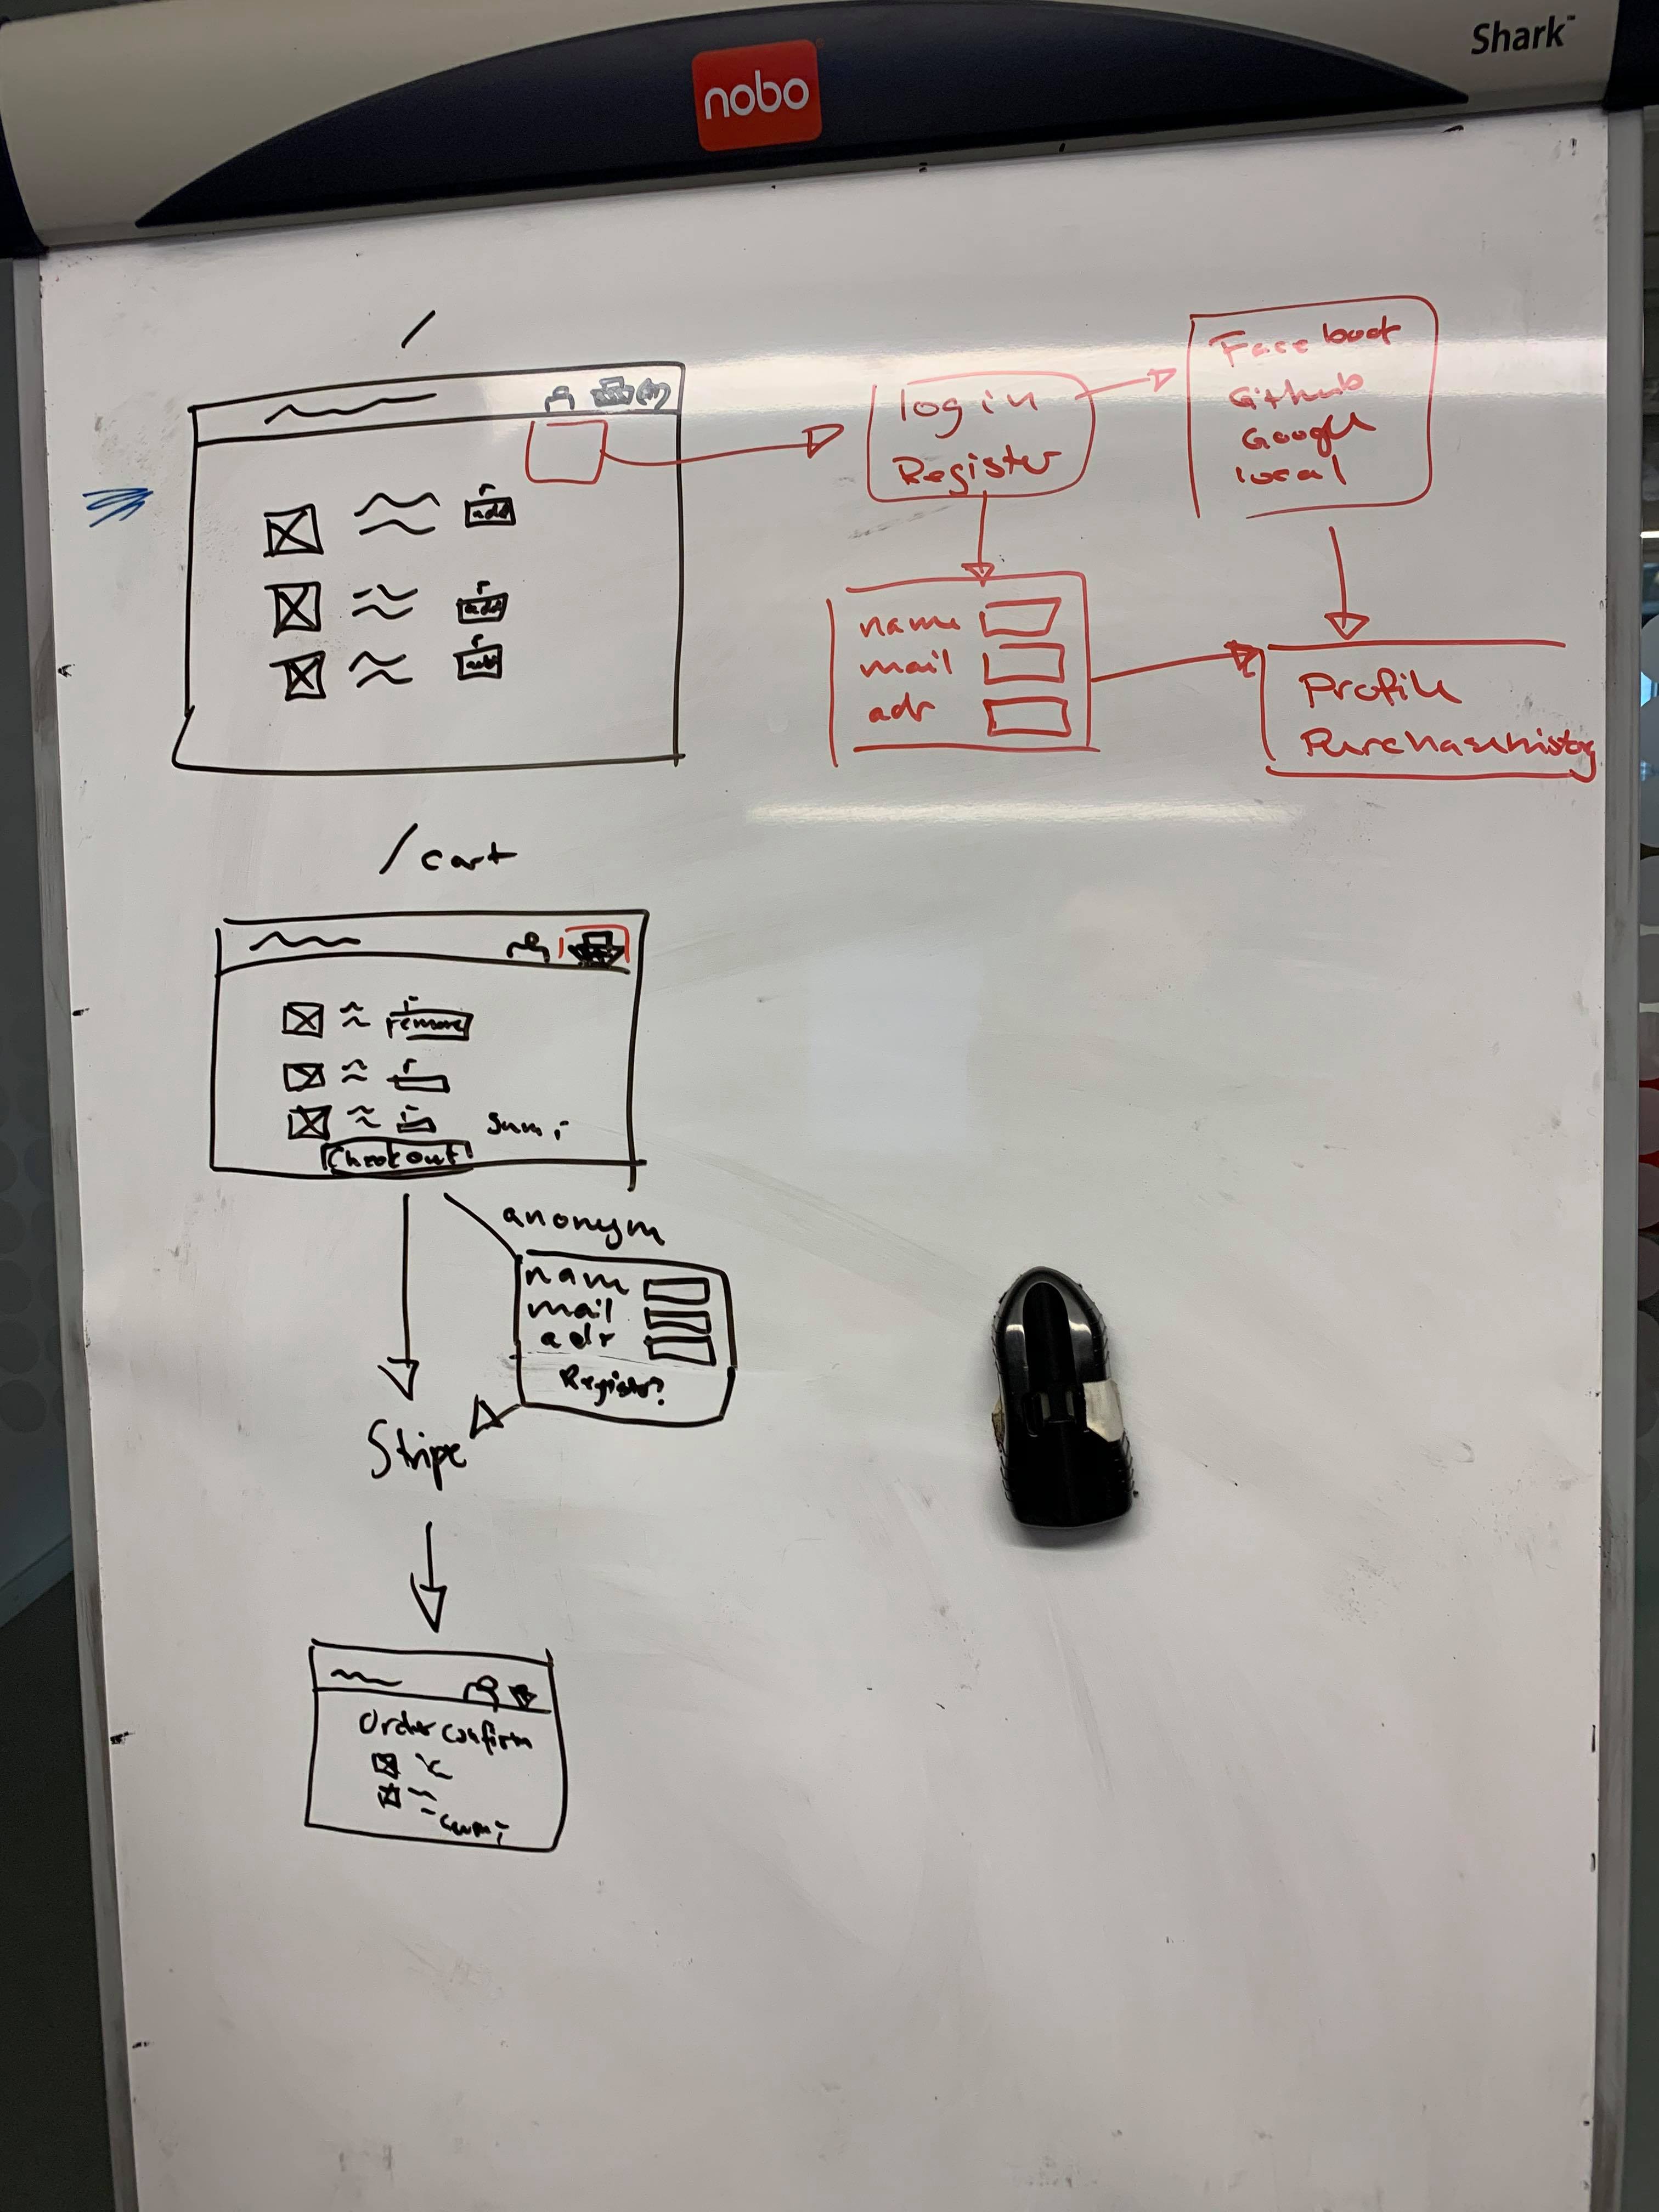 Shark™
nobo
/
add
add
add
login
Register
Facebook
Github
Google
local
name
mail
adr
Profile
Purchasehistory
/cart
remove
Sum:
Checkout
anonym
nam
mail
adr
Register?
Stripe
Order confirm
sum: